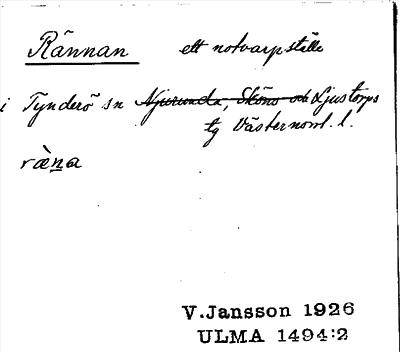 Rännan ett notvarpställe
i Tynderö sn Njurunda, Sköns och Ljustorps
tg Västernorrl. l.
ræ̀na
V.Jansson 1926
ULMA 1494:2